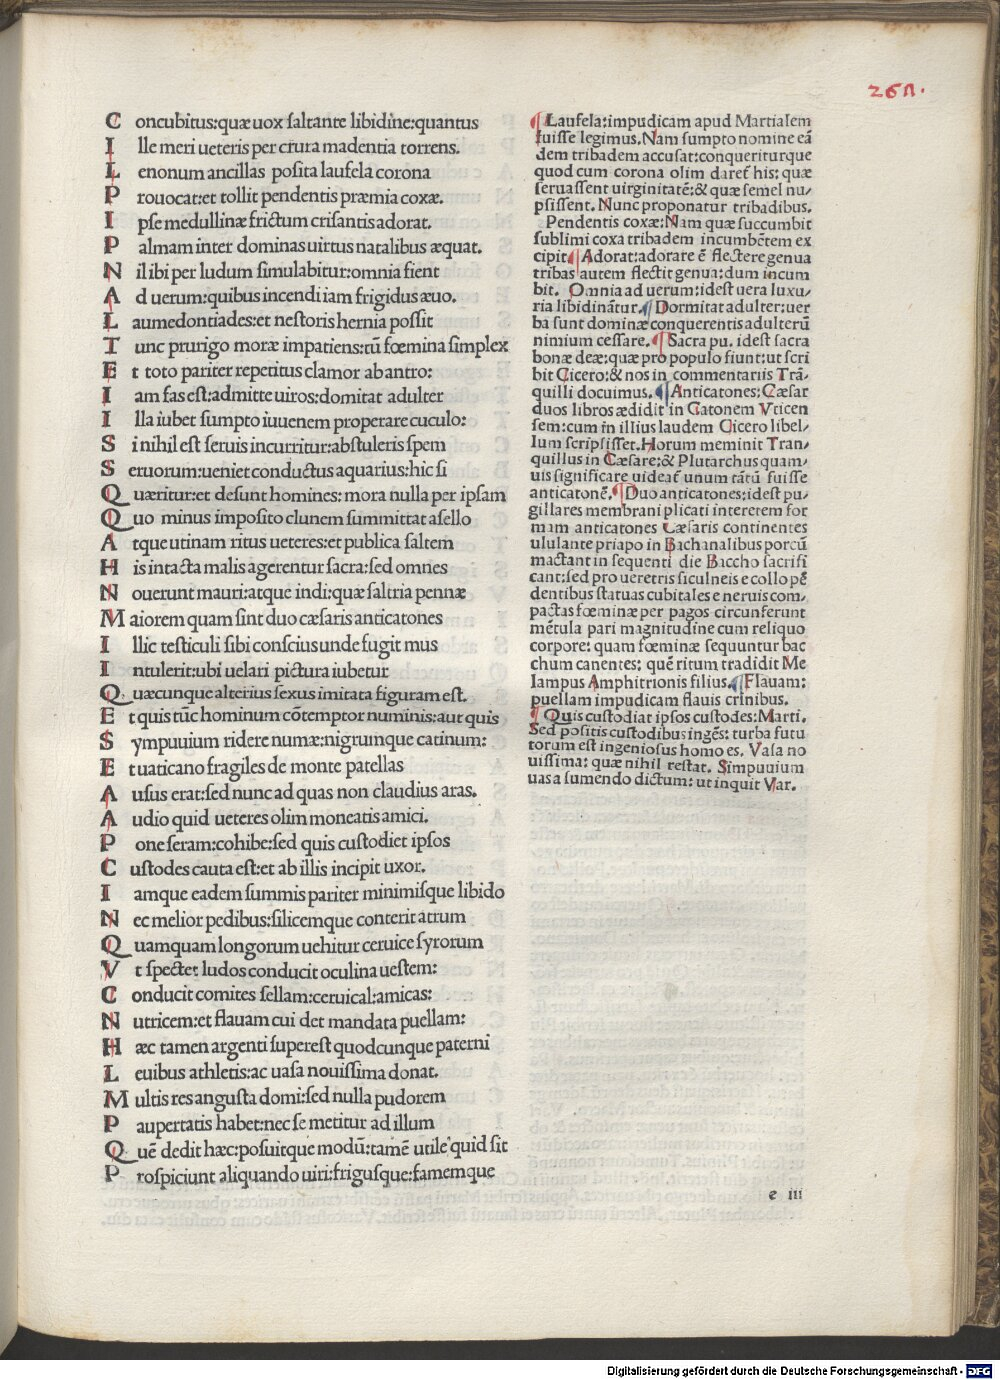 261.
Concubitus:quæ uox saltante libidine:quantus
Ille meri ueteris per crura madentia torrens.
Lenonum ancillas posita laufela corona
Prouocat:et tollit pendentis præmia coxæ.
Ipse medullinæ frictum crisantis adorat.
Palmam inter dominas uirtus natalibus æquat.
Nil ibi per ludum simulabitur:omnia fient
Ad uerum:quibus incendi iam frigidus æuo.
Laumedontiades:et nestoris hernia possit
Tunc prurigo moræ impatiens:tū fœmina simplex
Et toto pariter repetitus clamor ab antro:
Iam fas est:admitte uiros:domitat adulter
Illa iubet sumpto iuuenem properare cuculo:
Si nihil est seruis incurritur:abstuleris spem
Seruorum:ueniet conductus aquarius:hic si
Quæritur:et desunt homines: mora nulla per ipsam
Quo minus imposito clunem summittat asello
Atque utinam ritus ueteres:et publica saltem
His intacta malis agerentur sacra:sed omnes
Nouerunt mauri:atque indi:quæ saltria pennæ
Maiorem quam sint duo cæsaris anticatones
Illic testiculi sibi conscius unde fugit mus
Intulerit:ubi uelari pictura iubetur
Quæcunque alterius sexus imitata figuram est.
Et quis tūc hominum cōtemptor numinis:aut quis
Sympuuium ridere numæ:nigrumque catinum:
Et uaticano fragiles de monte patellas
Ausus erat:sed nunc ad quas non claudius aras.
Audio quid ueteres olim moneatis amici.
Pone seram:cohibe:sed quis custodiet ipsos
Custodes cauta est:et ab illis incipit uxor.
Iamque eadem summis pariter minimisque libido
Nec melior pedibus:silicemque conterit atrum
Quamquam longorum uehitur ceruice syrorum
Vt spectet ludos conducit oculina uestem:
Conducit comites sellam:ceruical:amicas:
Nutricem:et flauam cui det mandata puellam:
Hæc tamen argenti superest quodcunque paterni
Leuibus athletis:ac uasa nouissima donat.
Multis res angusta domi:sed nulla pudorem
Paupertatis habet:nec se metitur ad illum
Quē dedit hæc:posuitque modū:tamē utile quid sit
Prospiciunt aliquando uiri:frigusque:famemque
¶Laufela:impudicam apud Martialem
fuisse legimus.Nam sumpto nomine eā
dem tribadem accusat:conqueriturque
quod cum corona olim daret his: quæ
seruassent uirginitatē:& quæ semel nu-
psissent. Nunc proponatur tribadibus.
Pendentis coxæ:Nam quæ succumbit
sublimi coxa tribadem incumbētem ex
cipit.¶Adorat:adorare ē flectere genua
tribas autem flectit genua:dum incum
bit. Omnia ad uerum:idest uera luxu-
ria libidinātur.¶Dormitat adulter:uer
ba sunt dominæ conquerentis adulterū
nimium cessare.¶Sacra pu. idest sacra
bonæ deæ:quæ pro populo fiunt:ut scri
bit Cicero:& nos in commentariis Trā-
quilli docuimus.¶Anticatones:Cæsar
duos libros ædidit in Catonem Vticen
sem:cum in illius laudem Cicero libel-
lum scripsisset.Horum meminit Tran-
quillus in Cæsare:& Plutarchus quam-
uis significare uideat unum tātū fuisse
anticatonē.¶Duo anticatones:idest pu-
gillares membrani plicati interetem for
mam anticatones Cæsaris continentes
ululante priapo in Bachanalibus porcū
mactant in sequenti die Baccho sacrifi
cant:sed pro ueretris siculneis e collo pē
dentibus statuas cubitales e neruis com-
pactas fœminæ per pagos circunferunt
mētula pari magnitudine cum reliquo
corpore: quam fœminæ sequuntur bac
chum canentes: quē ritum tradidit Me
lampus Amphitrionis filius.¶Flauam:
puellam impudicam flauis crinibus.
¶Quis custodiat ipsos custodes:Marti.
Sed positis custodibus ingēs: turba futu
torum est ingeniosus homo es. Vasa no
uissima: quæ nihil restat. Simpuuium
uas a sumendo dictum: ut inquit Var.
e iii
Digitalisierung gefördert durch die Deutsche Forschungsgemeinschaft - DFG